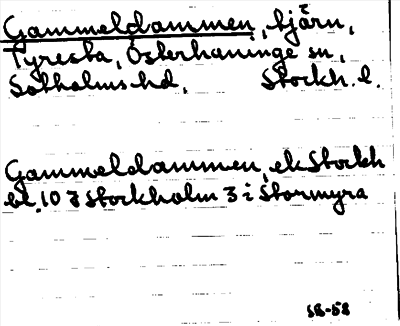 Gammeldammen, tjärn,
Tyresta, Österhaninge sn,
Sotholms hd, Stockh. l.
Gammeldammen, ek Stockh
bl. 10 I Stockholm 3 i Stormyra
58-58